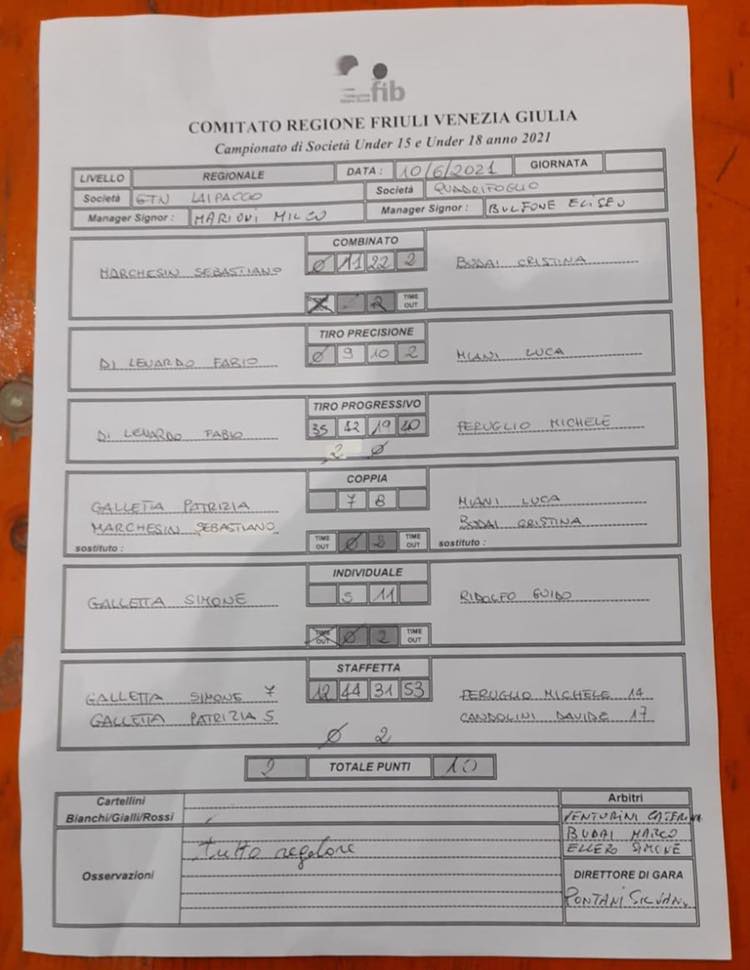 fib
COMITATO REGIONE FRIULI VENEZIA GIULIA
Campionato di Società Under 15 e Under 18 anno 2021
LIVELLO REGIONALE DATA : 10/6/2021 GIORNATA
Società GTN LAIPACCO Società QUADRIFOGLIO
Manager Signor : MARIONI MILCO Manager Signor : BULFONE ELISEO
COMBINATO
MARCHESIN SEBASTIANO Ø 11 22 2 BUDAI CRISTINA
2 TIME OUT
TIRO PRECISIONE
DI LENARDO FABIO Ø 9 10 2 MIANI LUCA
TIRO PROGRESSIVO
DI LENARDO FABIO 35 42 19 40 FERUGLIO MICHELE
2 Ø
COPPIA
GALLETTA PATRIZIA 7 8 MIANI LUCA
MARCHESIN SEBASTIANO BUDAI CRISTINA
sostituto : TIME OUT Ø 2 TIME OUT sostituto :
INDIVIDUALE
GALLETTA SIMONE 5 11 RIDOLFO GUIDO
TIME OUT Ø 2 TIME OUT
STAFFETTA
GALLETTA SIMONE 7 12 44 31 53 FERUGLIO MICHELE 14
GALLETTA PATRIZIA 5 CANDOLINI DAVIDE 17
Ø 2
2 TOTALE PUNTI 10
Cartellini
Bianchi/Gialli/Rossi
Arbitri
VENTURINI CATERINA
BUDAI MARCO
ELLERO SIMONE
Osservazioni
tutto regolare
DIRETTORE DI GARA
PONTANI SILVANO